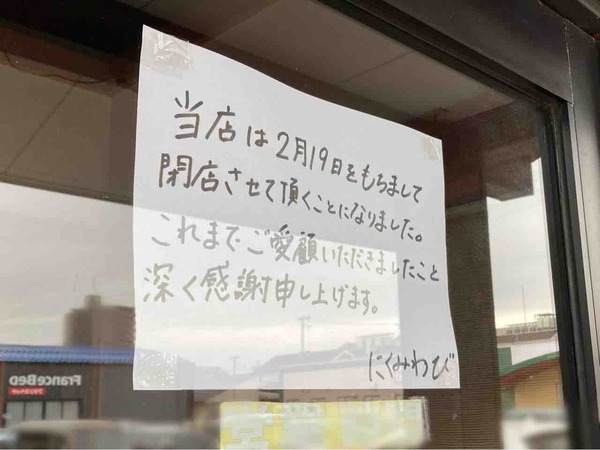 当店は2月19日をもちまして
閉店させて頂くことになりました。
これまでご愛顧いただきましたこと
深く感謝申し上げます。
にくみわび
FranceBed
フランスベッド
営